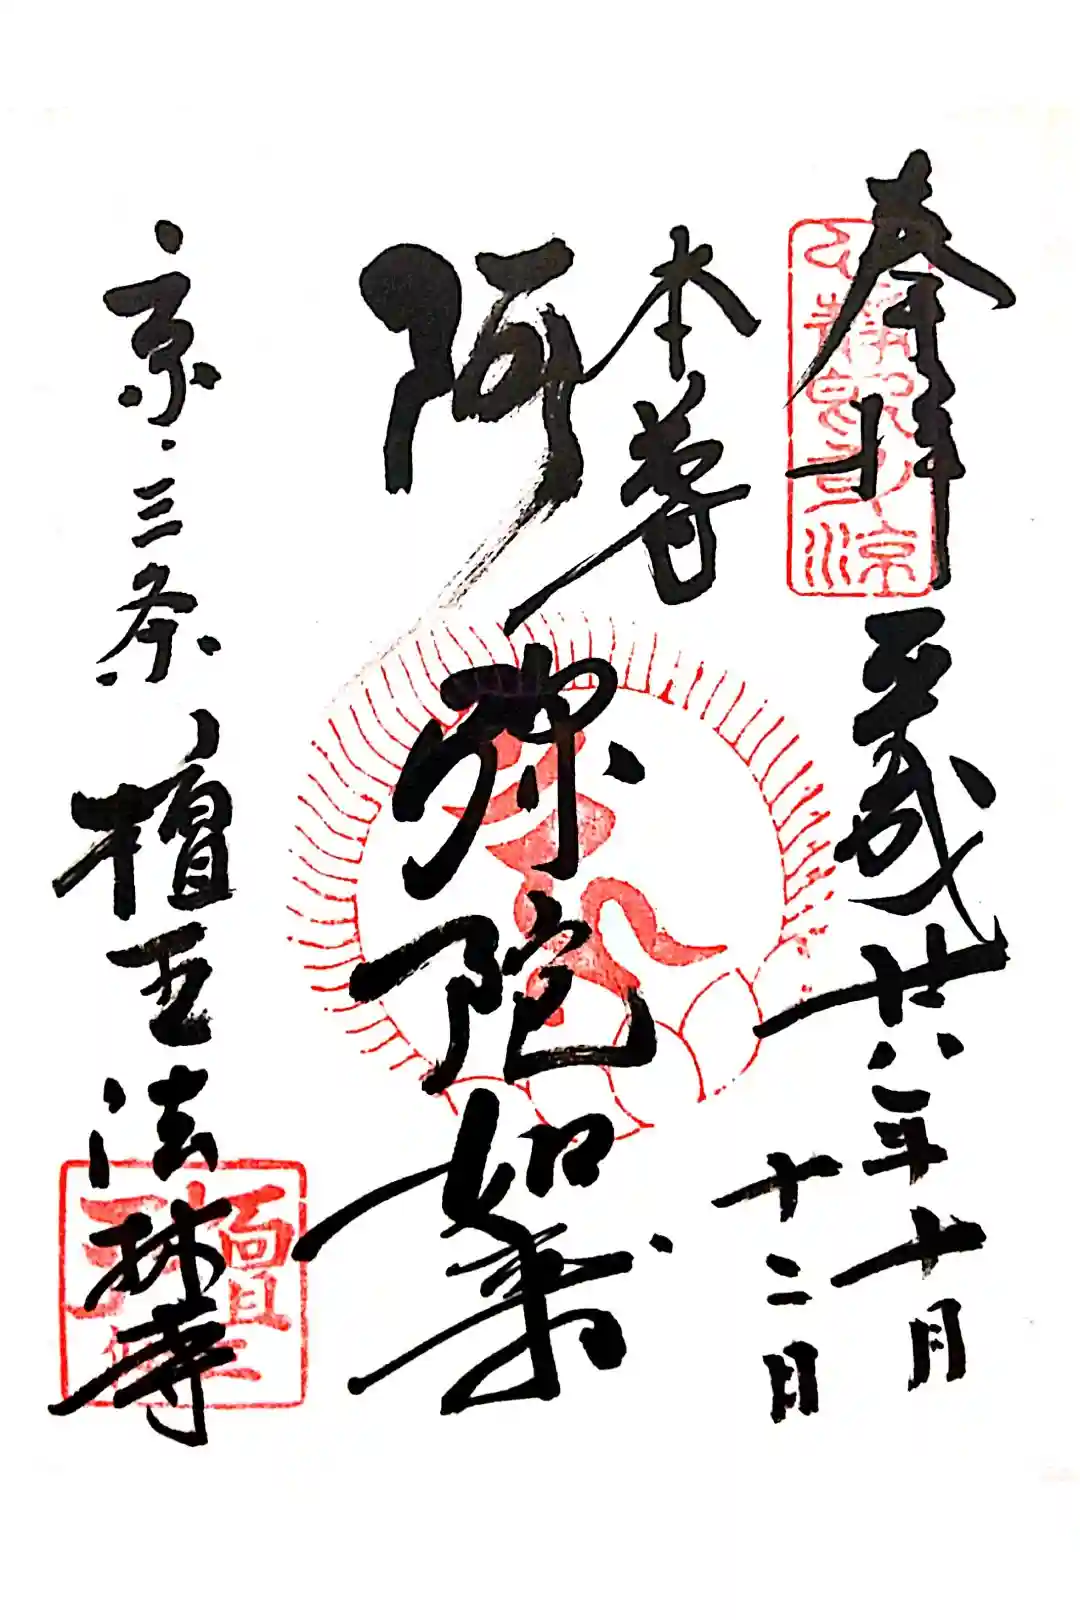 奉拝
平成廿八年十月
十二日
本尊
阿弥陀如来
京・三条
檀王法林寺